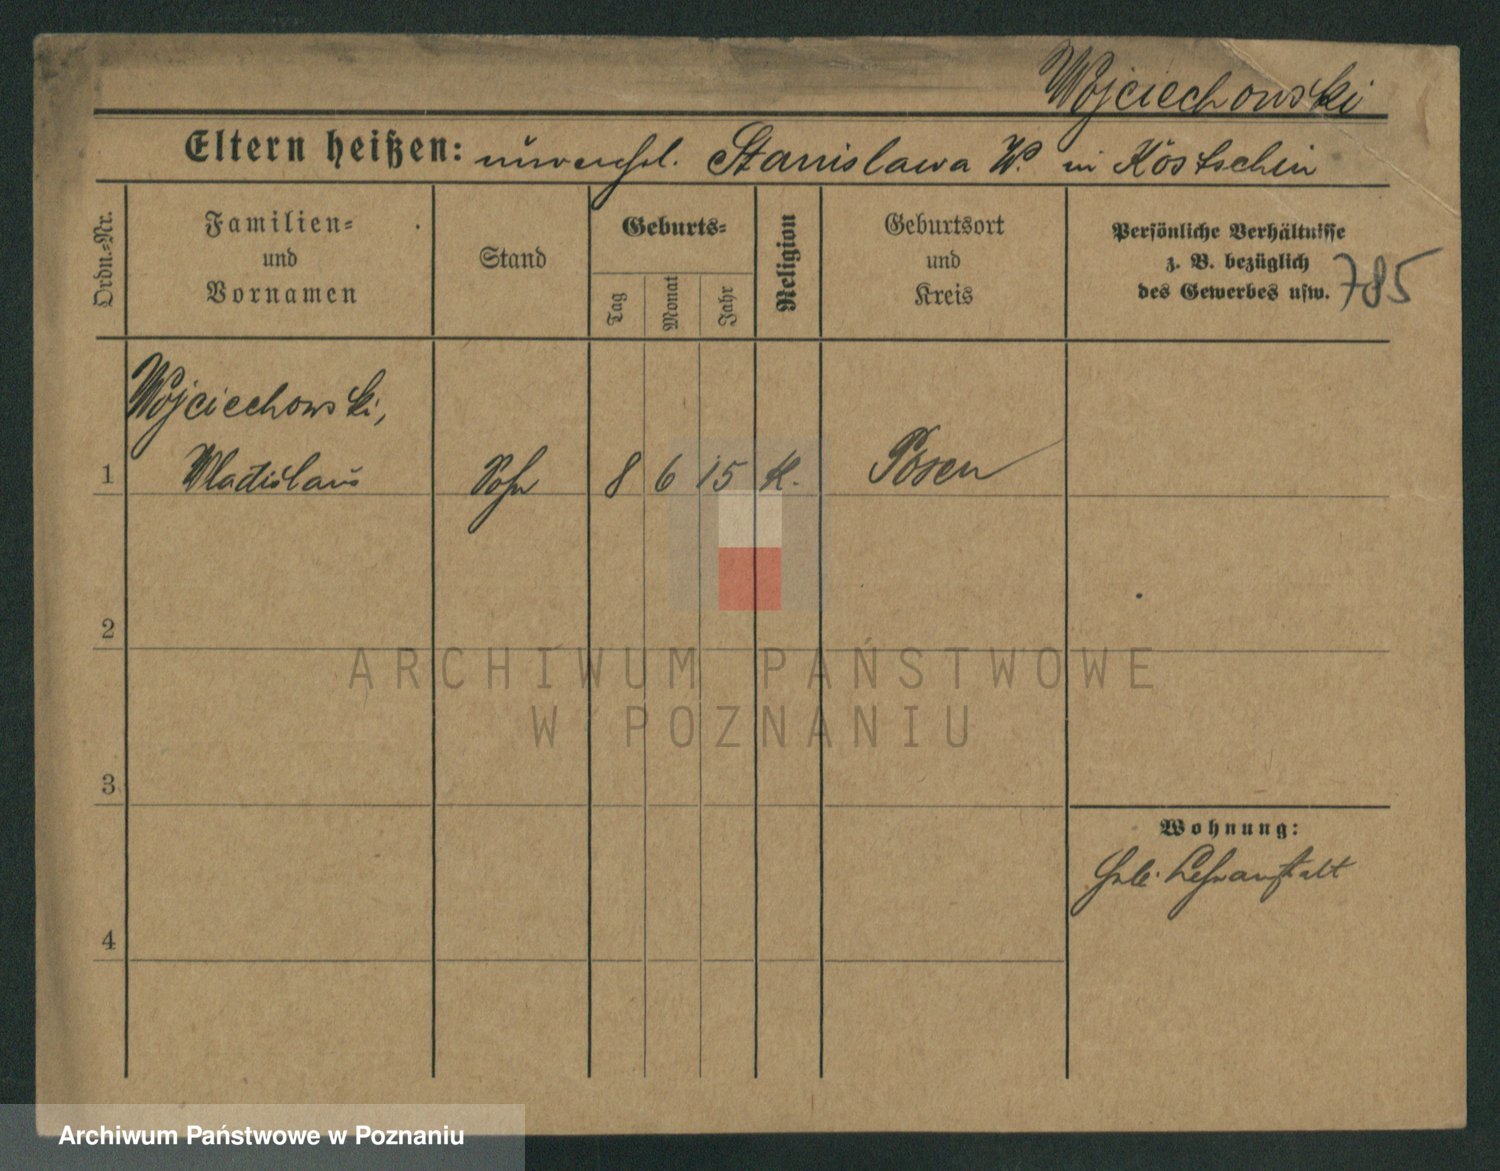 Wojciechowski
Eltern heißen: unverehl. Stanislawa W. in Kostschin
Ordn.-Nr.
Familien-
und
Vornamen
Stand
Geburts-
Tag
Monat
Jahr
Religion
Geburtsort
und
Kreis
Persönliche Verhältnisse
z. B. bezüglich
des Gewerbes usw.
785
Wojciechowski,
1 Wladislaus Sohn 8 6 15 K. Posen
2
3
4
Wohnung:
Lehranstalt
ARCHIWUM PAŃSTWOWE
W POZNANIU
Archiwum Państwowe w Poznaniu